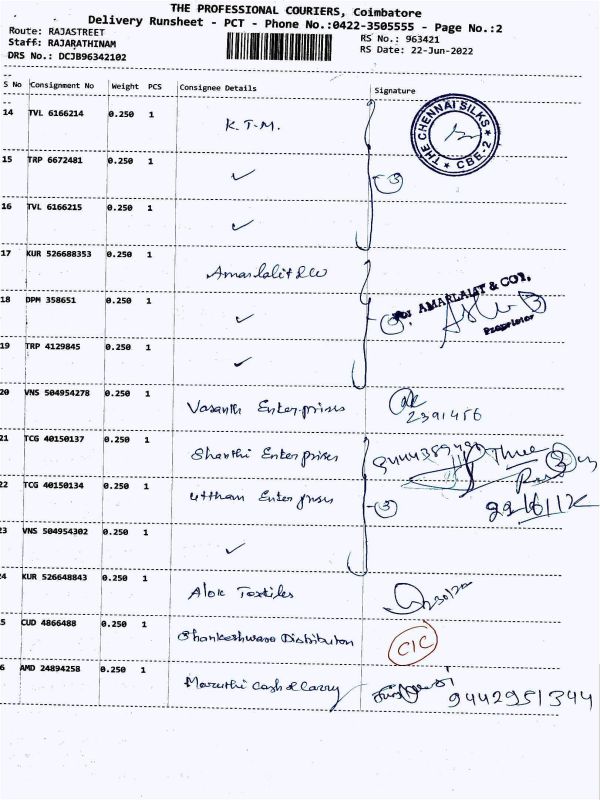 THE PROFESSIONAL COURIERS, Coimbatore
Delivery Runsheet - PCT - Phone No.:0422-3505555 - Page No.:2
Route: RAJASTREET
Staff: RAJARATHINAM
DRS No.: DCJB96342102
RS No.: 963421
RS Date: 22-Jun-2022
S No Consignment No Weight PCS Consignee Details Signature
14 TVL 6166214 0.250 1 K.T.M.
THE CHENNAI SILKS CBE-2
15 TRP 6672481 0.250 1 ✓ 3
16 TVL 6166215 0.250 1 ✓
17 KUR 526688353 0.250 1 Amarlalit & co
18 DPM 358651 0.250 1 ✓ For AMARLALAT & CO., 3
Proprietor
19 TRP 4129845 0.250 1 ✓
20 VNS 504954278 0.250 1 Vasanth Enterprises
2391456
21 TCG 40150137 0.250 1 Shanthi Enterprises Three 3
22 TCG 40150134 0.250 1 Uttham Enterprises 3
23 VNS 504954302 0.250 1 ✓
24 KUR 526648843 0.250 1 Alok Textiles
5 CUD 4866488 0.250 1 Shankeshwara Distributon CIC
6 AMD 24894258 0.250 1 Maruthi Cash & Carry 9442951344